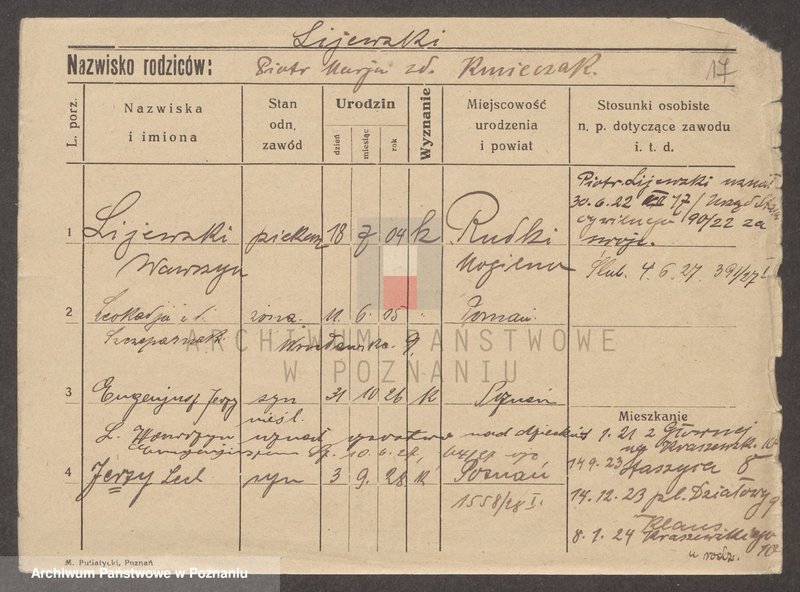 Lijewski
Nazwisko rodziców: Piotr Marja zd. Kmieczak. 17
L. porz.
Nazwiska i imiona
Stan odn. zawód
Urodzin
dzień
miesiąc
rok
Wyznanie
Miejscowość urodzenia i powiat
Stosunki osobiste n. p. dotyczące zawodu i. t. d.
1 Lijewski piekarz 18 7 04 k Rudki
Wawrzyn Mogilno
Piotr Lijewski uznał
30.6.22 17/ Urząd
cywilnego 190/22 za
swoje.
Ślub. 4.6.27 391/27 I
2 Leokadja z d. żona 11. 6. 05 " Poznań
Szczepaniak Wrocławska 9.
3 Eugenjusz Jerzy syn 31 10 26 k Poznań
nieśl.
L. Wawrzyn uznał ojcostwo nad dzieckiem
10.6.28
4 Jerzy Lech syn 3 9. 28 k Poznań
1558/28 I.
Mieszkanie
1.21 z Głównej
Kraszewsk. 10
14 9. 23 Staszyca 8
14.12.23 pl. Działowy 9
Klaus.
8.1.24 Kraszewskiego 10
u rodz.
M. Putiatycki, Poznań
ARCHIWUM PAŃSTWOWE
W POZNANIU
Archiwum Państwowe w Poznaniu